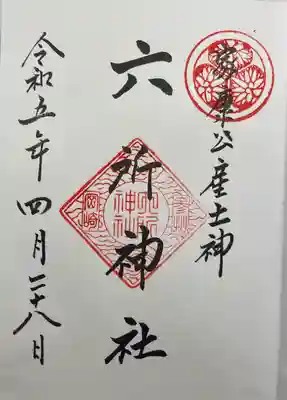 家康公産土神
六所神社
令和五年四月二十八日
岡崎
六所
神社